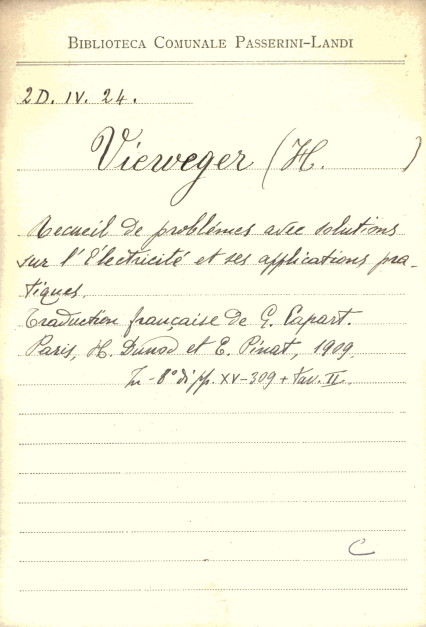 BIBLIOTECA COMUNALE PASSERINI-LANDI
2D. IV. 24.
Vieweger (H. )
Recueil de problémes avec solutions
sur l'Électricité et ses applications pra-
tiques.
Traduction française de G. Capart.
Paris, H. Dunod et E. Pinat, 1909.
In-8° di pp. XV-309 + tav. II.
C